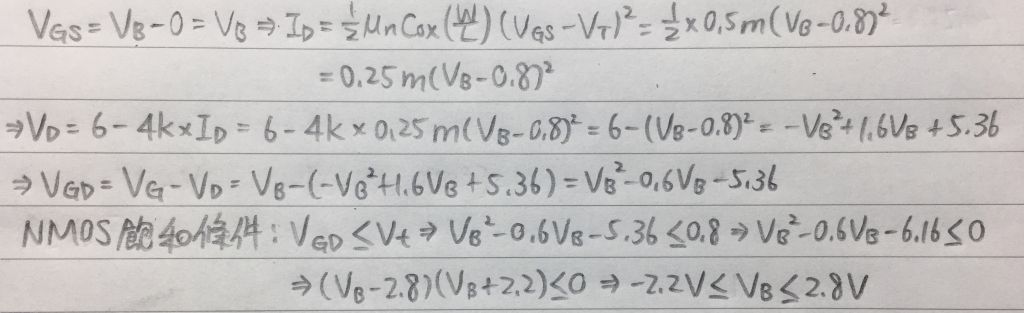 V_GS = V_B - 0 = V_B ⇒ I_D = 1/2 μnCox(W/L)(V_GS - V_T)² = 1/2 × 0.5m(V_B - 0.8)²
= 0.25m(V_B - 0.8)²
⇒ V_D = 6 - 4k × I_D = 6 - 4k × 0.25m(V_B - 0.8)² = 6 - (V_B - 0.8)² = -V_B² + 1.6V_B + 5.36
⇒ V_GD = V_G - V_D = V_B - (-V_B² + 1.6V_B + 5.36) = V_B² - 0.6V_B - 5.36
NMOS飽和條件: V_GD ≤ V_t ⇒ V_B² - 0.6V_B - 5.36 ≤ 0.8 ⇒ V_B² - 0.6V_B - 6.16 ≤ 0
⇒ (V_B - 2.8)(V_B + 2.2) ≤ 0 ⇒ -2.2V ≤ V_B ≤ 2.8V